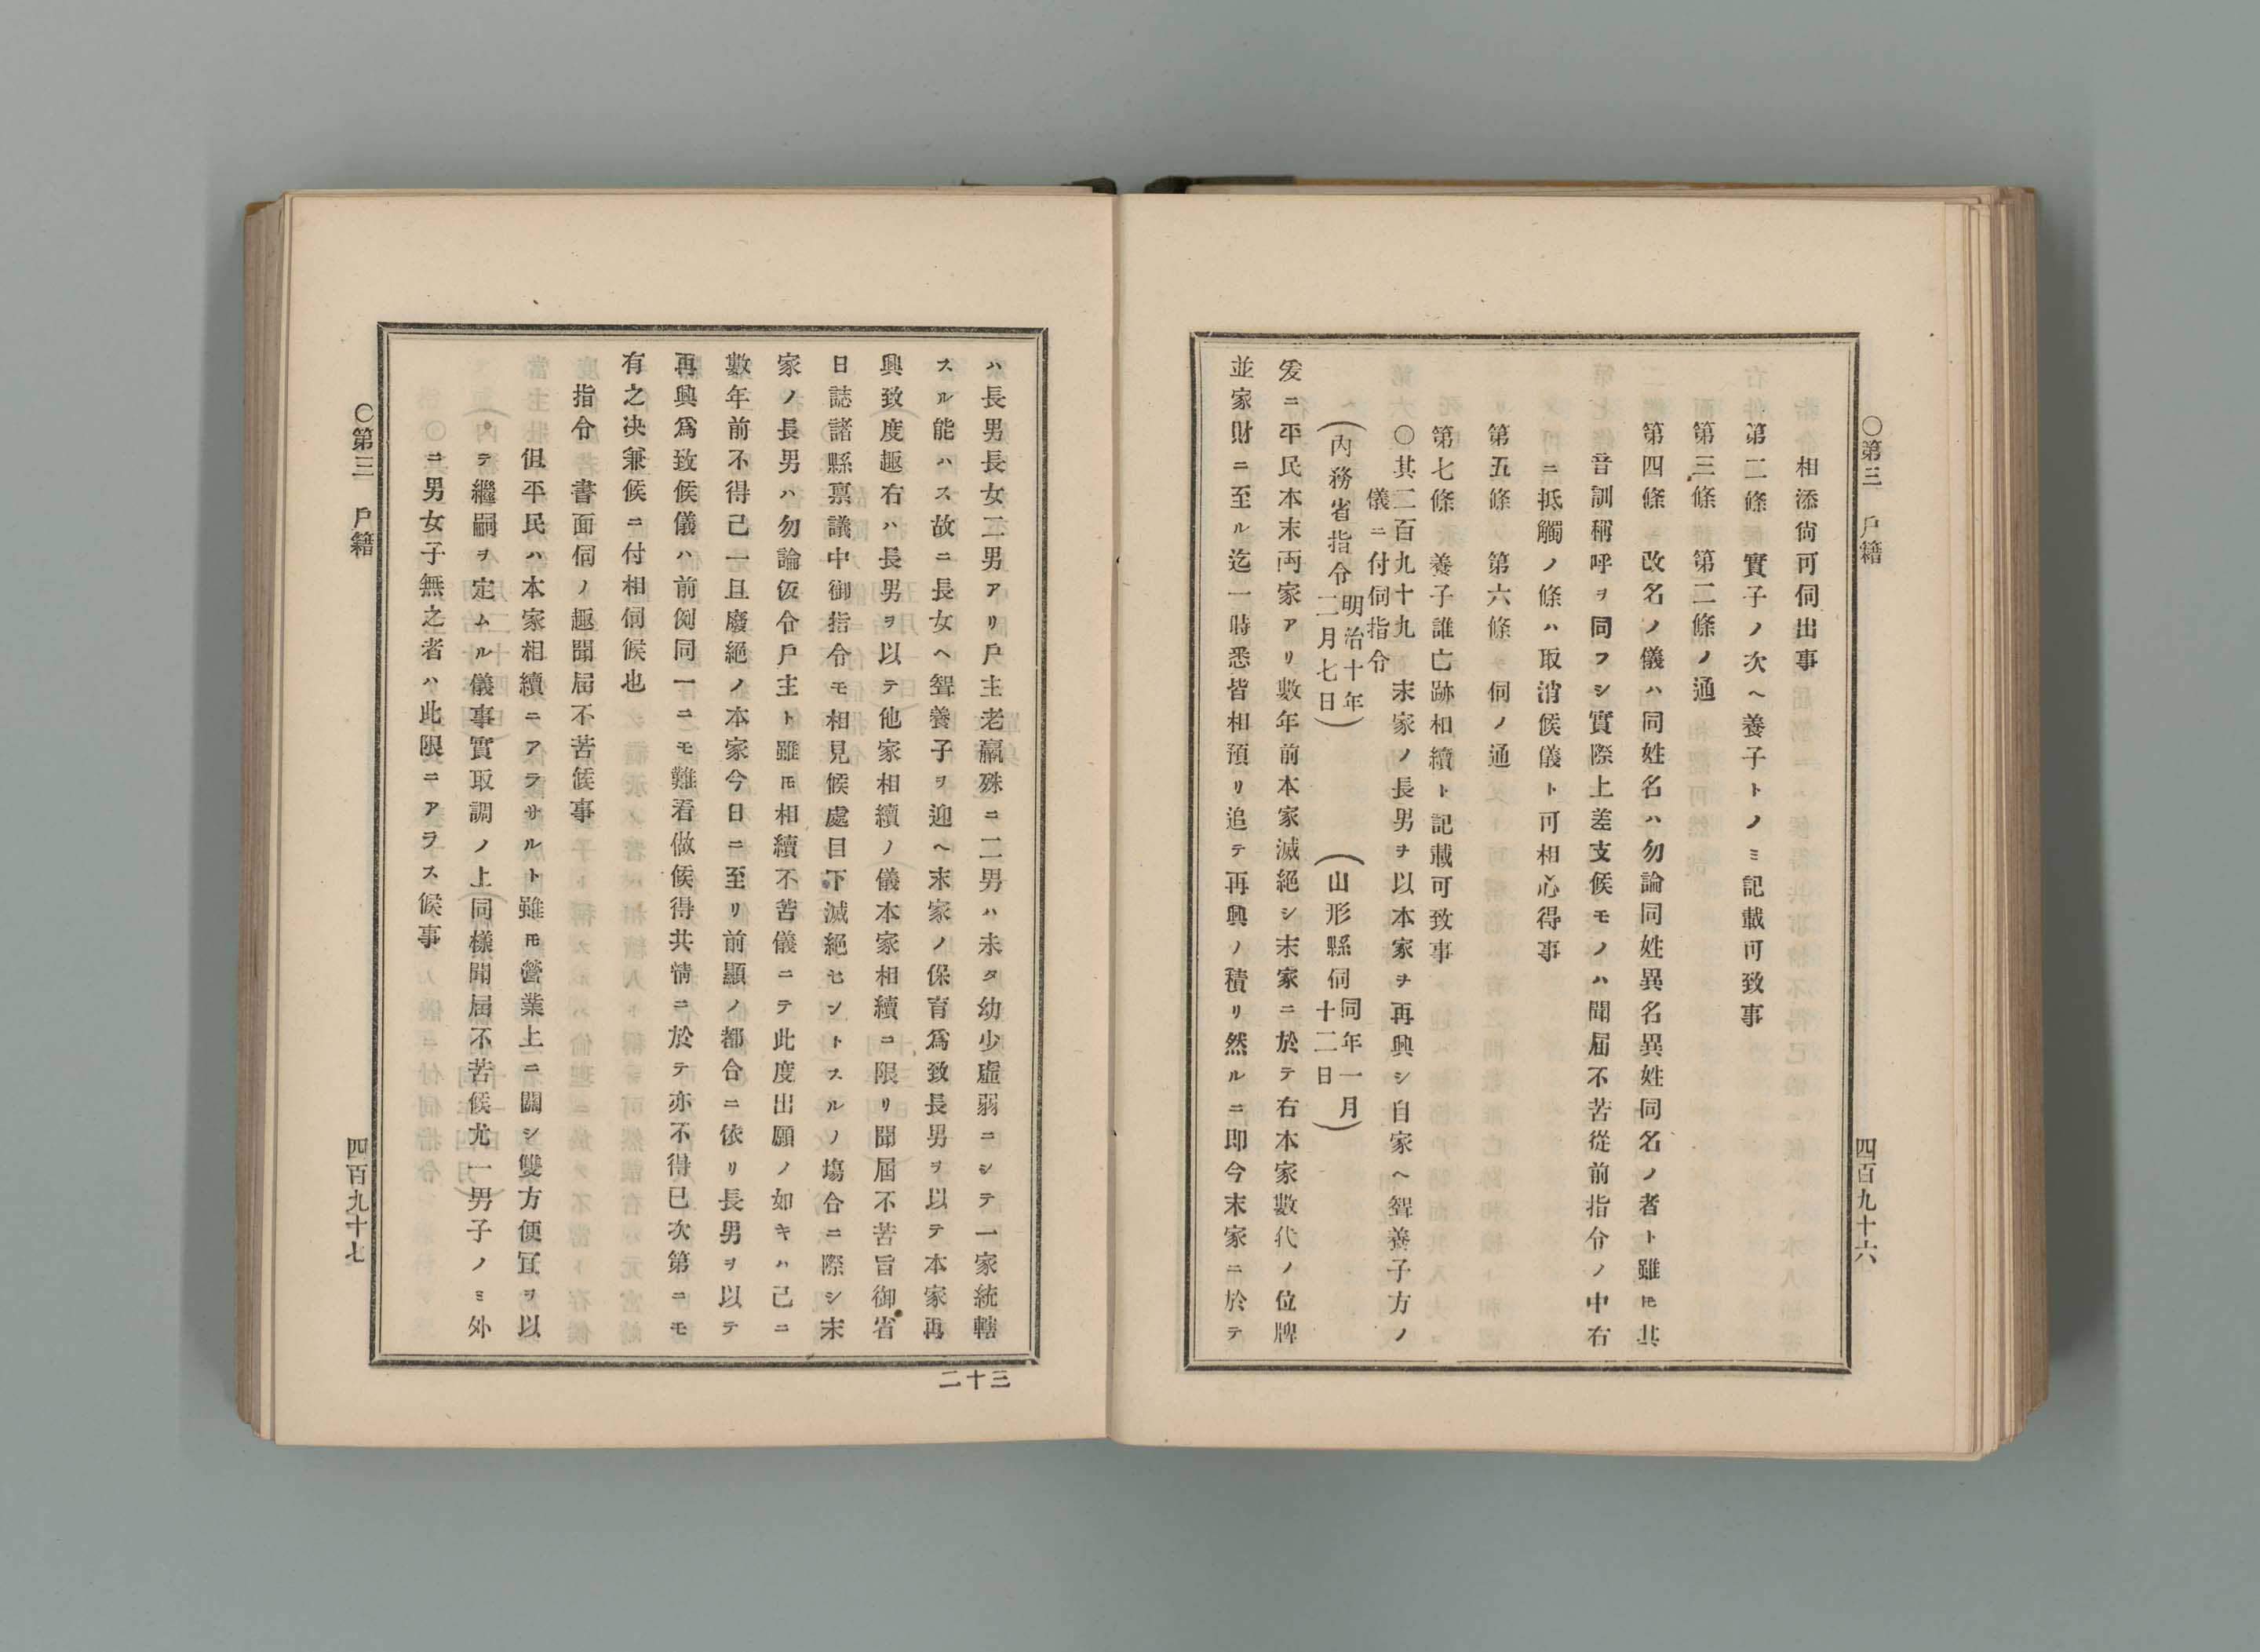 ○第三　戸籍
四百九十六
相添尙可伺出事
第二條　實子ノ次ヘ養子トノミ記載可致事
第三條　第二條ノ通
第四條　改名ノ儀ハ同姓名ハ勿論同姓異名異姓同名ノ者ト雖𪜈其
音訓稱呼ヲ同フシ實際上差支候モノハ聞屆不苦從前指令ノ中右
ニ抵觸ノ條ハ取消候儀ト可相心得事
第五條　第六條　伺ノ通
第七條　養子誰亡跡相續ト記載可致事
○其二百九十九　末家ノ長男ヲ以本家ヲ再興シ自家ヘ聟養子方ノ
儀ニ付伺指令
（內務省指令明治十年二月七日）　（山形縣伺同年一月十二日）
爰ニ平民本末両家アリ數年前本家滅絕シ末家ニ於テ右本家數代ノ位牌
並家財ニ至ル迄一時悉皆相預リ追テ再興ノ積リ然ルニ即今末家ニ於テ
ハ長男長女二男アリ戶主老羸殊ニ二男ハ未タ幼少虛弱ニシテ一家統轄
スル能ハス故ニ長女ヘ聟養子ヲ迎ヘ末家ノ保育爲致長男ヲ以テ本家再
興致度趣右ハ長男ヲ以テ他家相續ノ儀本家相續ニ限リ聞屆不苦旨御省
日誌諸縣禀議中御指令モ相見候處目下滅絕セントスルノ塲合ニ際シ末
家ノ長男ハ勿論仮令戶主ト雖𪜈相續不苦儀ニテ此度出願ノ如キハ己ニ
數年前不得己一旦廢絕ノ本家今日ニ至リ前顯ノ都合ニ依リ長男ヲ以テ
再興爲致候儀ハ前例同一ニモ難看做候得共情ニ於テ亦不得已次第ニモ
有之决兼候ニ付相伺候也
指令　書面伺ノ趣聞屆不苦候事
但平民ハ本家相續ニアラサルト雖𪜈營業上ニ關シ雙方便冝ヲ以
テ繼嗣ヲ定ムル儀事實取調ノ上同樣聞屆不苦候尤一男子ノミ外
ニ男女子無之者ハ此限ニアラス候事
○第三　戸籍
四百九十七
三十二